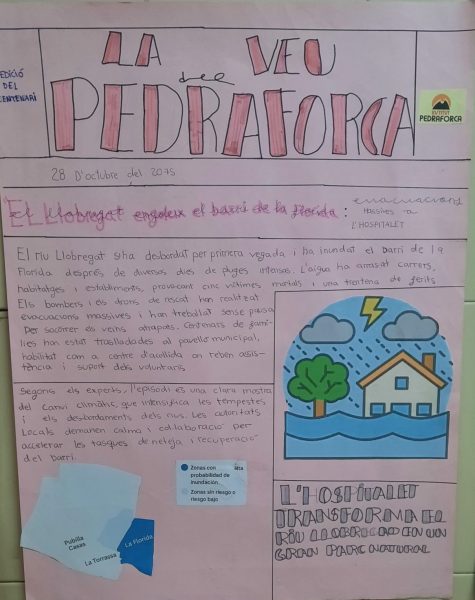 EDICIÓ
DEL
CENTENARI
LA VEU
del
PEDRAFORCA
INSTITUT
PEDRAFORCA
28 D'octubre del 2075
EL Llobregat engoleix el barri de la Florida :
evacuacions
Massives a
L'HOSPITALET
El riu Llobregat s'ha desbordat per primera vegada i ha inundat el barri de la
Florida després de diversos dies de pluges intenses. L'aigua ha arrasat carrers,
habitatges i establiments, provocant cinc víctimes mortals i una trentena de ferits.
Els bombers i els drons de rescat han realitzat
evacuacions massives i han treballat sense pausa
per socórrer els veïns atrapats. Centenars de famí-
lies han estat traslladades al pavelló municipal,
habilitat com a centre d'acollida on reben assis-
tència i suport dels voluntaris.
Segons els experts, l'episodi és una clara mostra
del canvi climàtic, que intensifica les tempestes
i els desbordaments dels rius. Les autoritats
Locals demanen calma i col·laboració per
accelerar les tasques de neteja i recuperació
del barri.
Zonas con alta
probabilidad de
inundación.
Zonas sin riesgo o
riesgo bajo
Pubilla
Casas
La Torrassa
La Florida
L'HOSPITALET
TRANSFORMA EL
RIU LLOBREGAD EN UN
GRAN PARC NATURAL